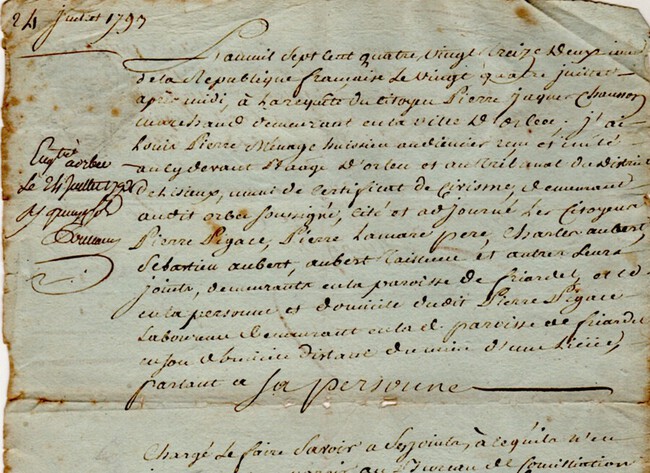 24 juillet 1793
L'an mil Sept Cent quatre vingt treize deuxieme
de la République française Le vingt quatre juillet
après midi, à la requête du Citoyen Pierre jaques
marchand demeurant en la ville d'orbec. j'ai
Louis Pierre Ménage huissier audiencier
au cy devant d'orbec et au tribunal du District
de Lisieux, muni de Certificat de Civisme, demeurant
audit orbec Soussigné, Cité et adjourné les Citoyens
Pierre Pigace, Pierre Lamare pere, Charles aubert,
Sebastien aubert, aubert et autres Leurs
joints, demeurants en la paroisse de friardel, et ce
en la personne et domicile dudit Pierre Pigace
Laboureur demeurant en la d. paroisse de friardel
en son domicile distant du mien d'une Lieue,
parlant a Sa personne
Eng.tré à orbec
Le 24 juillet 1793
Chargé de faire Savoir a Ses joints, à
au Bureau de Conciliation